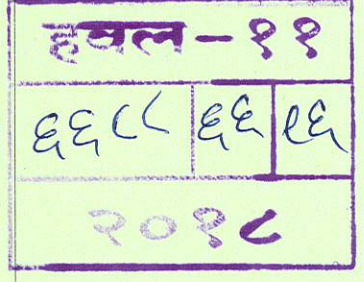 हवल-११
६६८८ ६६ ९६
२०१८